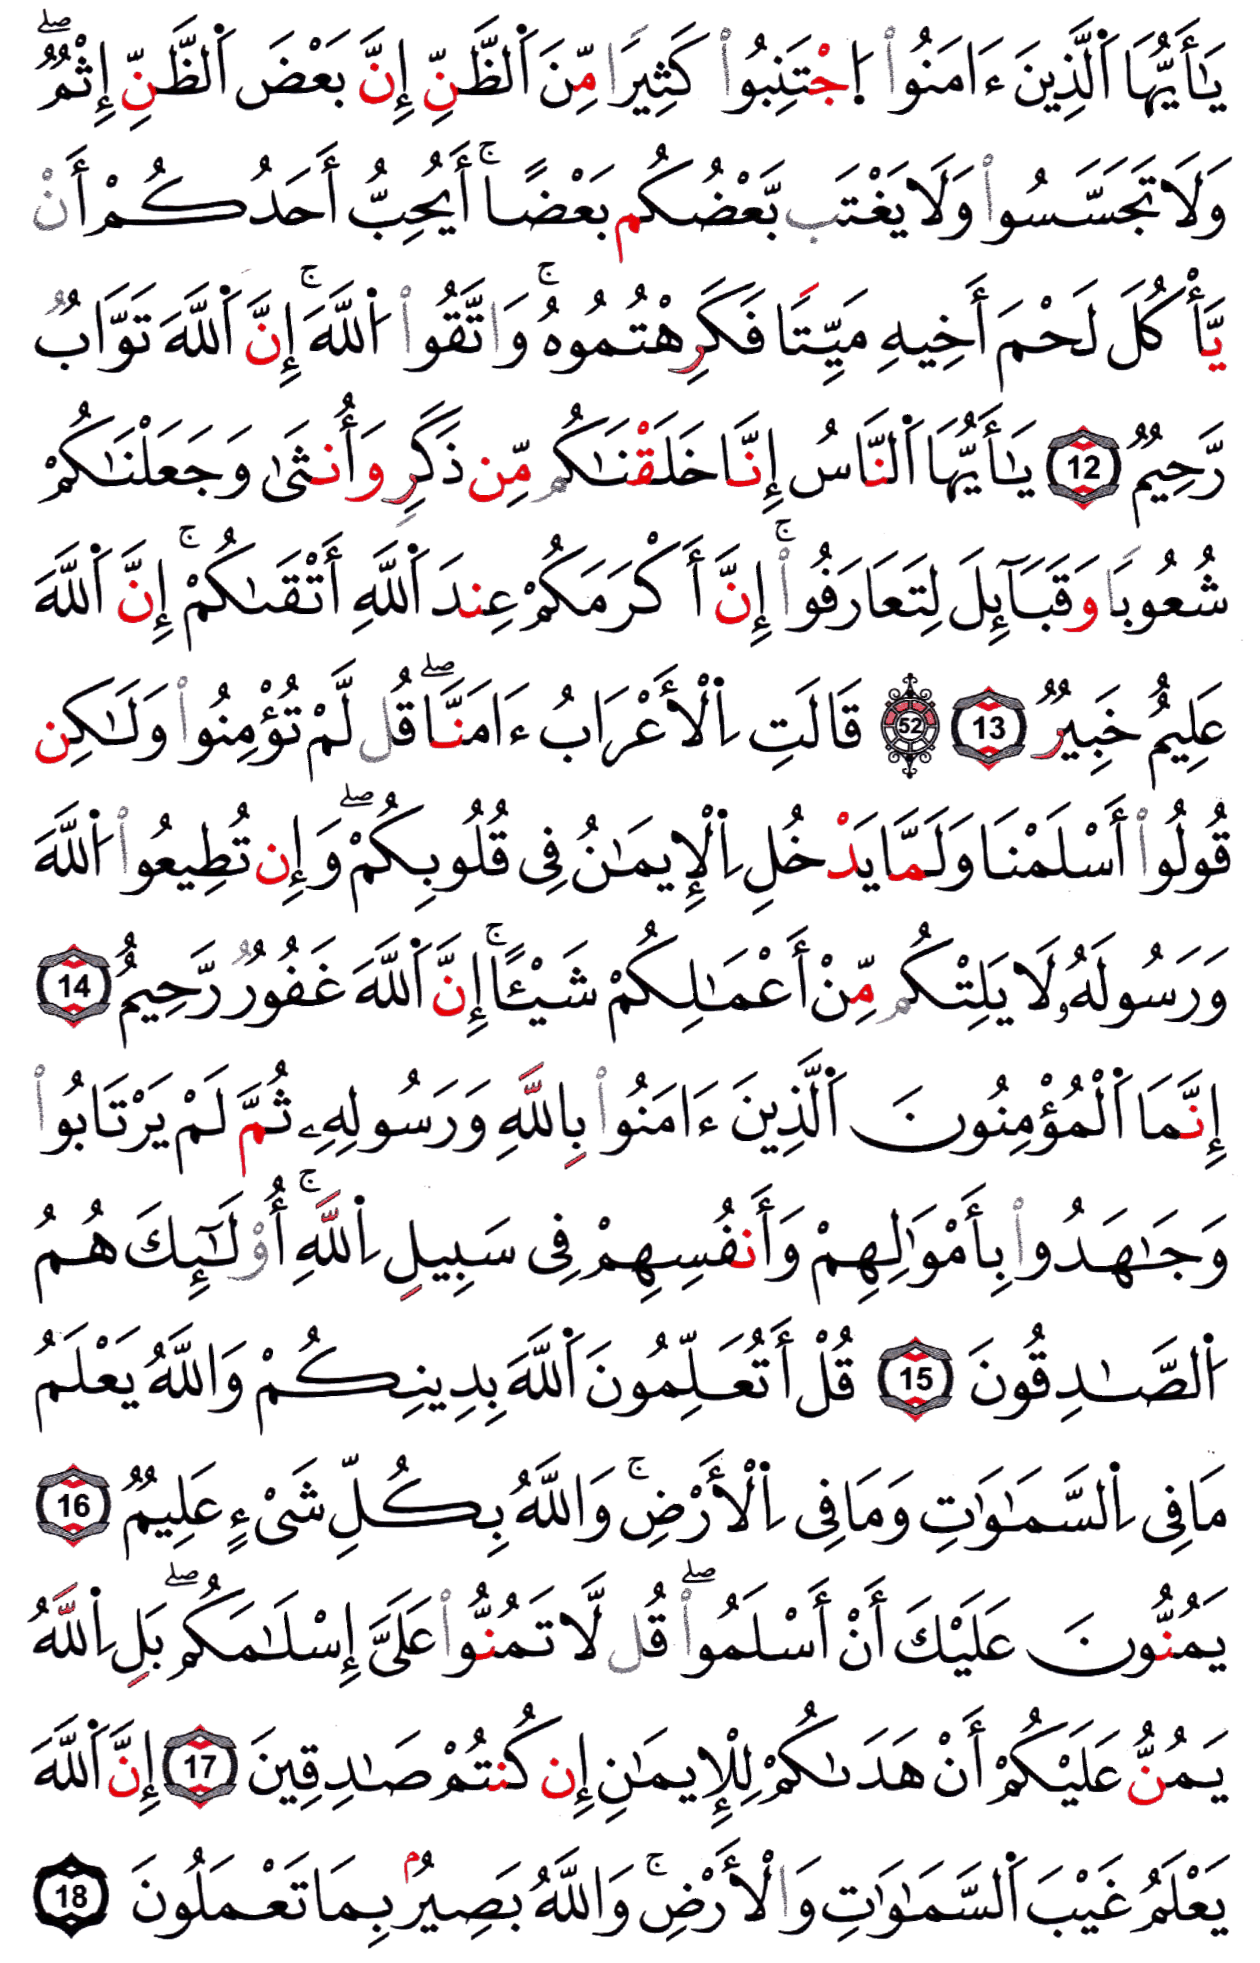 يَٰٓأَيُّهَا ٱلَّذِينَ ءَامَنُوا۟ ٱجْتَنِبُوا۟ كَثِيرًا مِّنَ ٱلظَّنِّ إِنَّ بَعْضَ ٱلظَّنِّ إِثْمٌ ۖ
وَلَا تَجَسَّسُوا۟ وَلَا يَغْتَب بَّعْضُكُم بَعْضًا ۚ أَيُحِبُّ أَحَدُكُمْ أَنْ
يَّأْكُلَ لَحْمَ أَخِيهِ مَيِّتًا فَكَرِهْتُمُوهُ ۚ وَاتَّقُوا۟ ٱللَّهَ ۚ إِنَّ ٱللَّهَ تَوَّابٌ
رَّحِيمٌ 12 يَٰٓأَيُّهَا ٱلنَّاسُ إِنَّا خَلَقْنَٰكُم مِّن ذَكَرٍ وَأُنثَىٰ وَجَعَلْنَٰكُمْ
شُعُوبًا وَقَبَآئِلَ لِتَعَارَفُوا۟ ۚ إِنَّ أَكْرَمَكُمْ عِندَ ٱللَّهِ أَتْقَىٰكُمْ ۚ إِنَّ ٱللَّهَ
عَلِيمٌ خَبِيرٌ 13 52 قَالَتِ ٱلْأَعْرَابُ ءَامَنَّا ۖ قُل لَّمْ تُؤْمِنُوا۟ وَلَٰكِن
قُولُوا۟ أَسْلَمْنَا وَلَمَّا يَدْخُلِ ٱلْإِيمَٰنُ فِى قُلُوبِكُمْ ۖ وَإِن تُطِيعُوا۟ ٱللَّهَ
وَرَسُولَهُۥ لَا يَلِتْكُم مِّنْ أَعْمَٰلِكُمْ شَيْـًٔا ۚ إِنَّ ٱللَّهَ غَفُورٌ رَّحِيمٌ 14
إِنَّمَا ٱلْمُؤْمِنُونَ ٱلَّذِينَ ءَامَنُوا۟ بِاللَّهِ وَرَسُولِهِۦ ثُمَّ لَمْ يَرْتَابُوا۟
وَجَٰهَدُوا۟ بِأَمْوَٰلِهِمْ وَأَنفُسِهِمْ فِى سَبِيلِ ٱللَّهِ ۚ أُو۟لَٰٓئِكَ هُمُ
ٱلصَّٰدِقُونَ 15 قُلْ أَتُعَلِّمُونَ ٱللَّهَ بِدِينِكُمْ وَاللَّهُ يَعْلَمُ
مَا فِى ٱلسَّمَٰوَٰتِ وَمَا فِى ٱلْأَرْضِ ۚ وَاللَّهُ بِكُلِّ شَىْءٍ عَلِيمٌ 16
يَمُنُّونَ عَلَيْكَ أَنْ أَسْلَمُوا۟ ۖ قُل لَّا تَمُنُّوا۟ عَلَىَّ إِسْلَٰمَكُم ۖ بَلِ ٱللَّهُ
يَمُنُّ عَلَيْكُمْ أَنْ هَدَىٰكُمْ لِلْإِيمَٰنِ إِن كُنتُمْ صَٰدِقِينَ 17 إِنَّ ٱللَّهَ
يَعْلَمُ غَيْبَ ٱلسَّمَٰوَٰتِ وَالْأَرْضِ ۚ وَاللَّهُ بَصِيرٌۢ بِمَا تَعْمَلُونَ 18